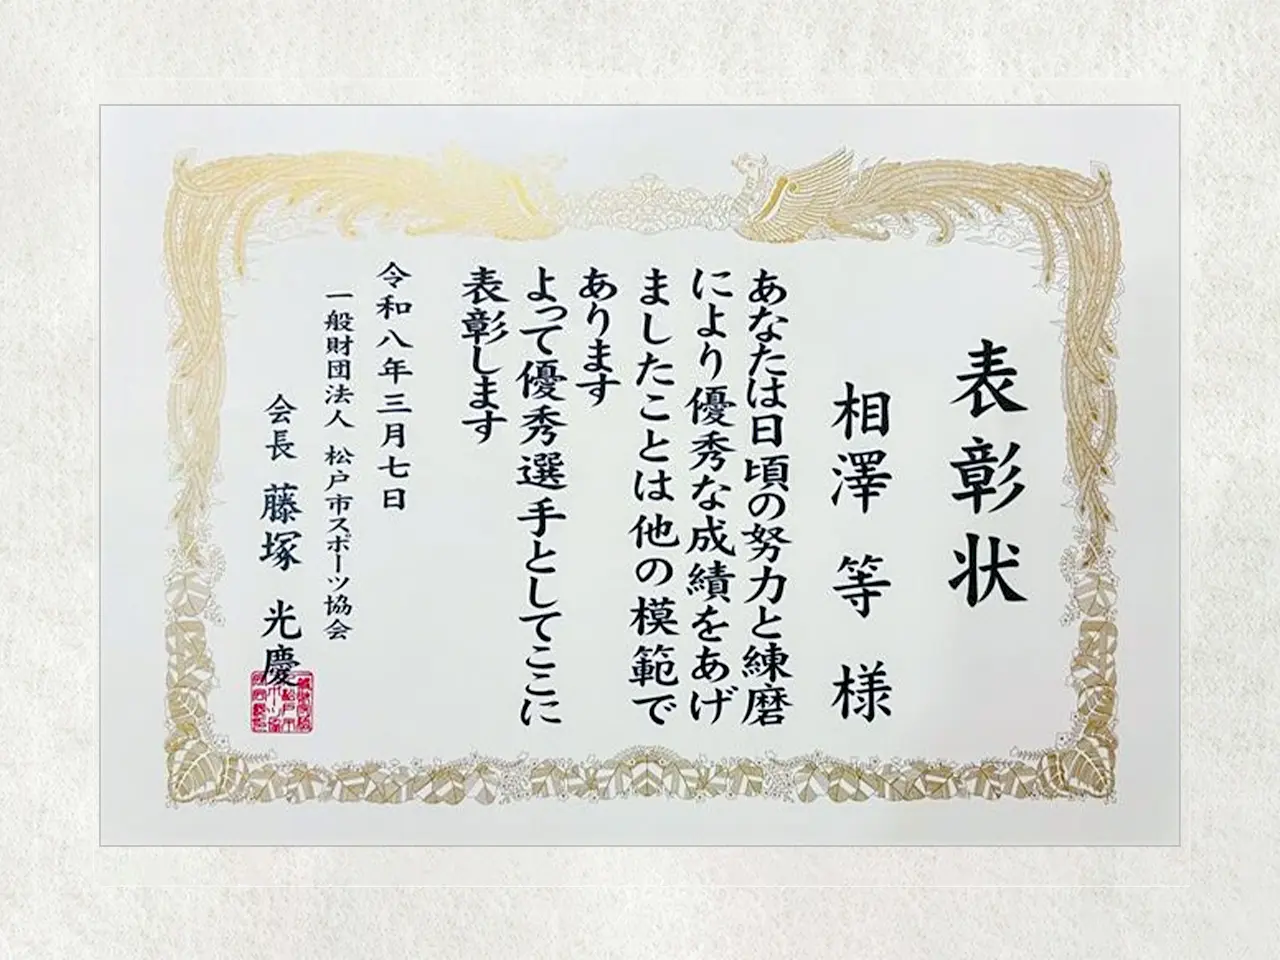 表彰状
相澤 等 様
あなたは日頃の努力と練磨
により優秀な成績をあげ
ましたことは他の模範で
あります
よって優秀選手としてここに
表彰します
令和八年三月七日
一般財団法人 松戸市スポーツ協会
会長 藤塚 光慶